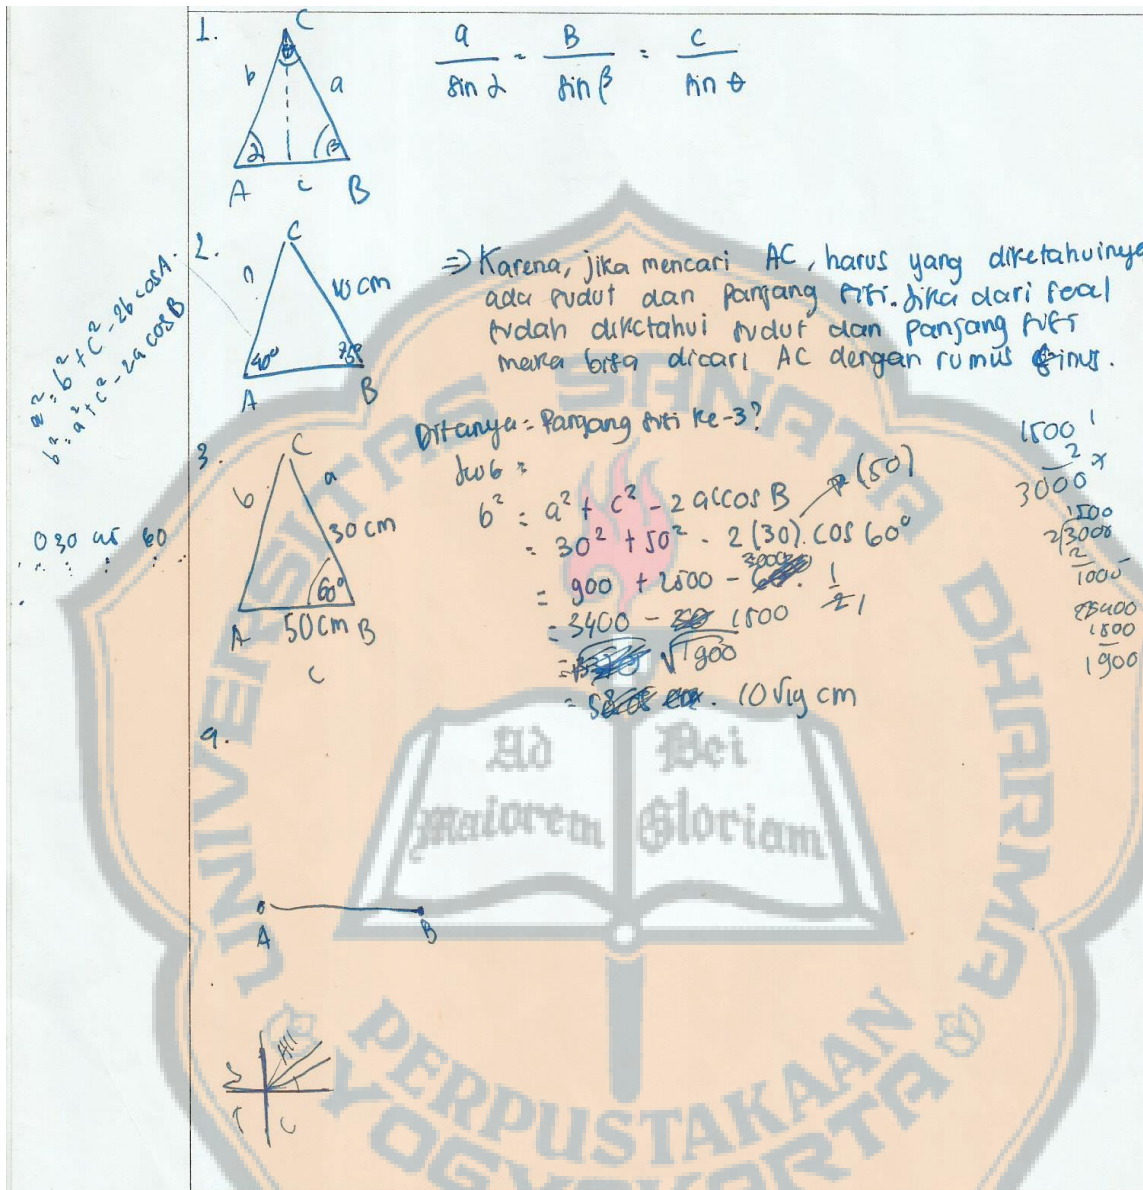 1.
C
b
a
α
β
A
c
B
a / sin α = B / sin β = c / sin θ
2.
C
10 cm
40°
75°
A
B
⇒ Karena, jika mencari AC, harus yang diketahuinya
ada sudut dan panjang sisi. Jika dari soal
sudah diketahui sudut dan panjang sisi
maka bisa dicari AC dengan rumus sinus.
a² = b² + c² - 2b cos A.
b² = a² + c² - 2a cos B
3.
C
b
a
30 cm
60°
A
50 cm
B
c
Ditanya = Panjang sisi ke-3?
Jwb =
b² = a² + c² - 2 ac cos B
= 30² + 50² - 2 (30). cos 60°
(50)
= 900 + 2500 - 3000 . 1/2
= 3400 - 1500
= √1900
= 10√19 cm
0 30 45 60
1500
2 x
3000
1500
2√3000
2
1000
3400
1500
1900
A
B
All
S
T
C
UNIVERSITAS SANATA DHARMA
Ad Dei
maiorem Gloriam
PERPUSTAKAAN
YOGYAKARTA